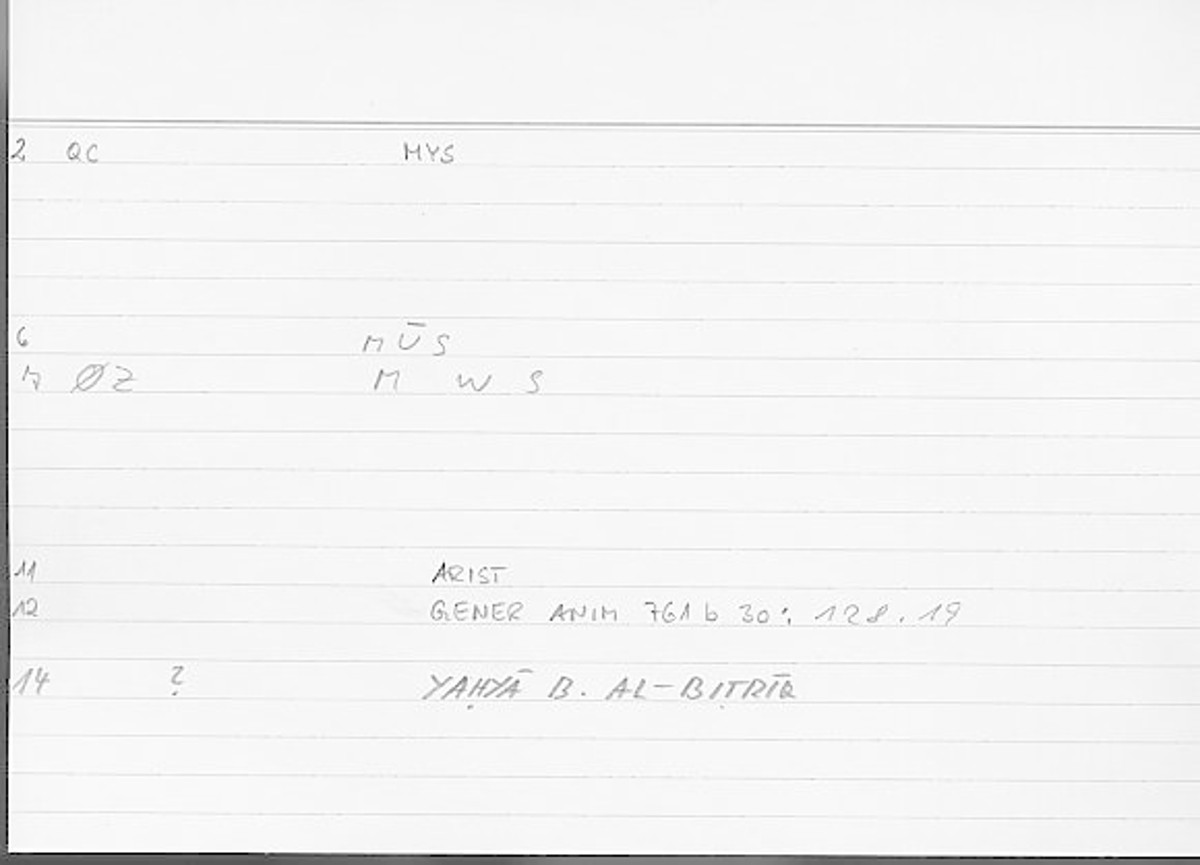 2 QC MYS
6 MŪS
ØZ M W S
11 ARIST
12 GENER ANIM 761 b 30 : 128.19
14 ? YAḤYĀ B. AL-BIṬRĪQ